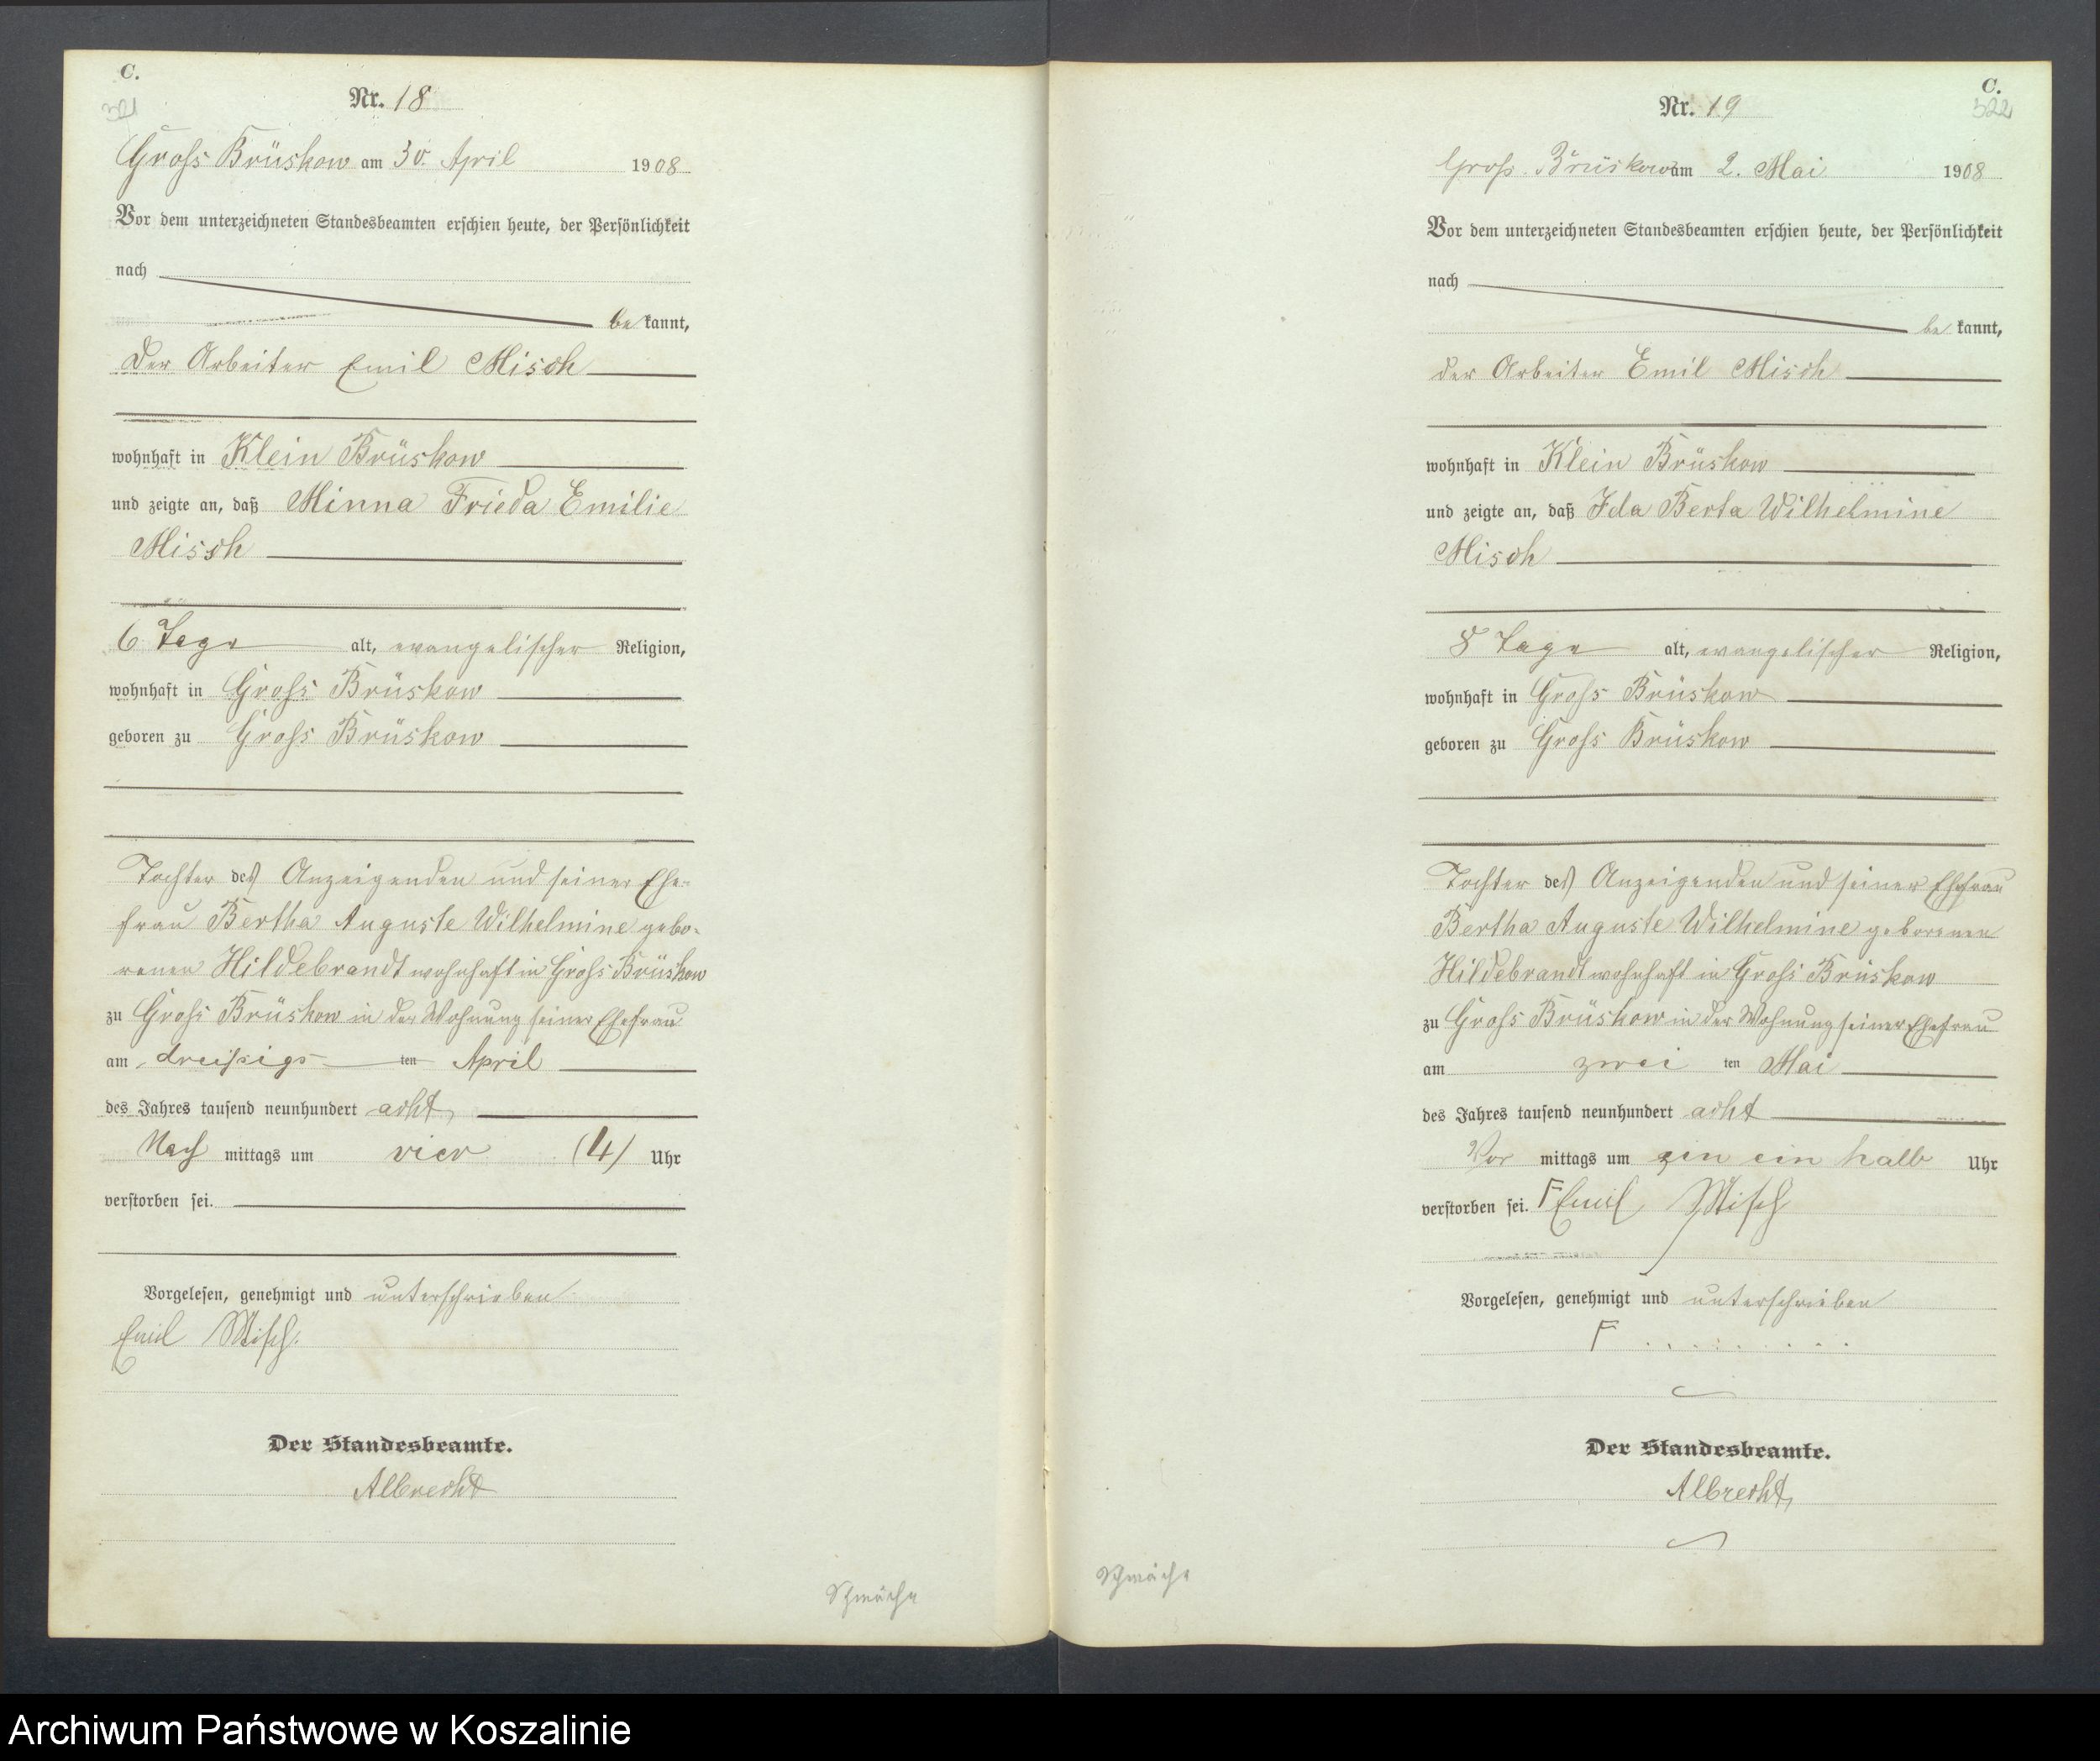 C.
321
Nr. 18
Gross Brüskow am 30. April 1908
Vor dem unterzeichneten Standesbeamten erschien heute, der Persönlichkeit
nach
be kannt,
der Arbeiter Emil Misch
wohnhaft in Klein Brüskow
und zeigte an, daß Minna Frieda Emilie
Misch
6 Tage alt, evangelischer Religion,
wohnhaft in Gross Brüskow
geboren zu Gross Brüskow
Tochter des Anzeigenden und seiner Ehe-
frau Bertha Auguste Wilhelmine gebo-
renen Hildebrandt wohnhaft in Gross Brüskow
zu Gross Brüskow in der Wohnung seiner Ehefrau
am dreißigs ten April
des Jahres tausend neunhundert acht,
Nach mittags um vier (4) Uhr
verstorben sei.
Vorgelesen, genehmigt und unterschrieben
Emil Misch.
Der Standesbeamte.
Albrecht
Schwäche
C.
322
Nr. 19
Gross Brüskow am 2. Mai 1908
Vor dem unterzeichneten Standesbeamten erschien heute, der Persönlichkeit
nach
be kannt,
der Arbeiter Emil Misch
wohnhaft in Klein Brüskow
und zeigte an, daß Ida Berta Wilhelmine
Misch
8 Tage alt, evangelischer Religion,
wohnhaft in Gross Brüskow
geboren zu Gross Brüskow
Tochter des Anzeigenden und seiner Ehefrau
Bertha Auguste Wilhelmine geborenen
Hildebrandt wohnhaft in Gross Brüskow
zu Gross Brüskow in der Wohnung seiner Ehefrau
am zwei ten Mai
des Jahres tausend neunhundert acht
Vor mittags um ein halb Uhr
verstorben sei. Emil Misch
Vorgelesen, genehmigt und unterschrieben
Der Standesbeamte.
Albrecht,
Schwäche
Archiwum Państwowe w Koszalinie